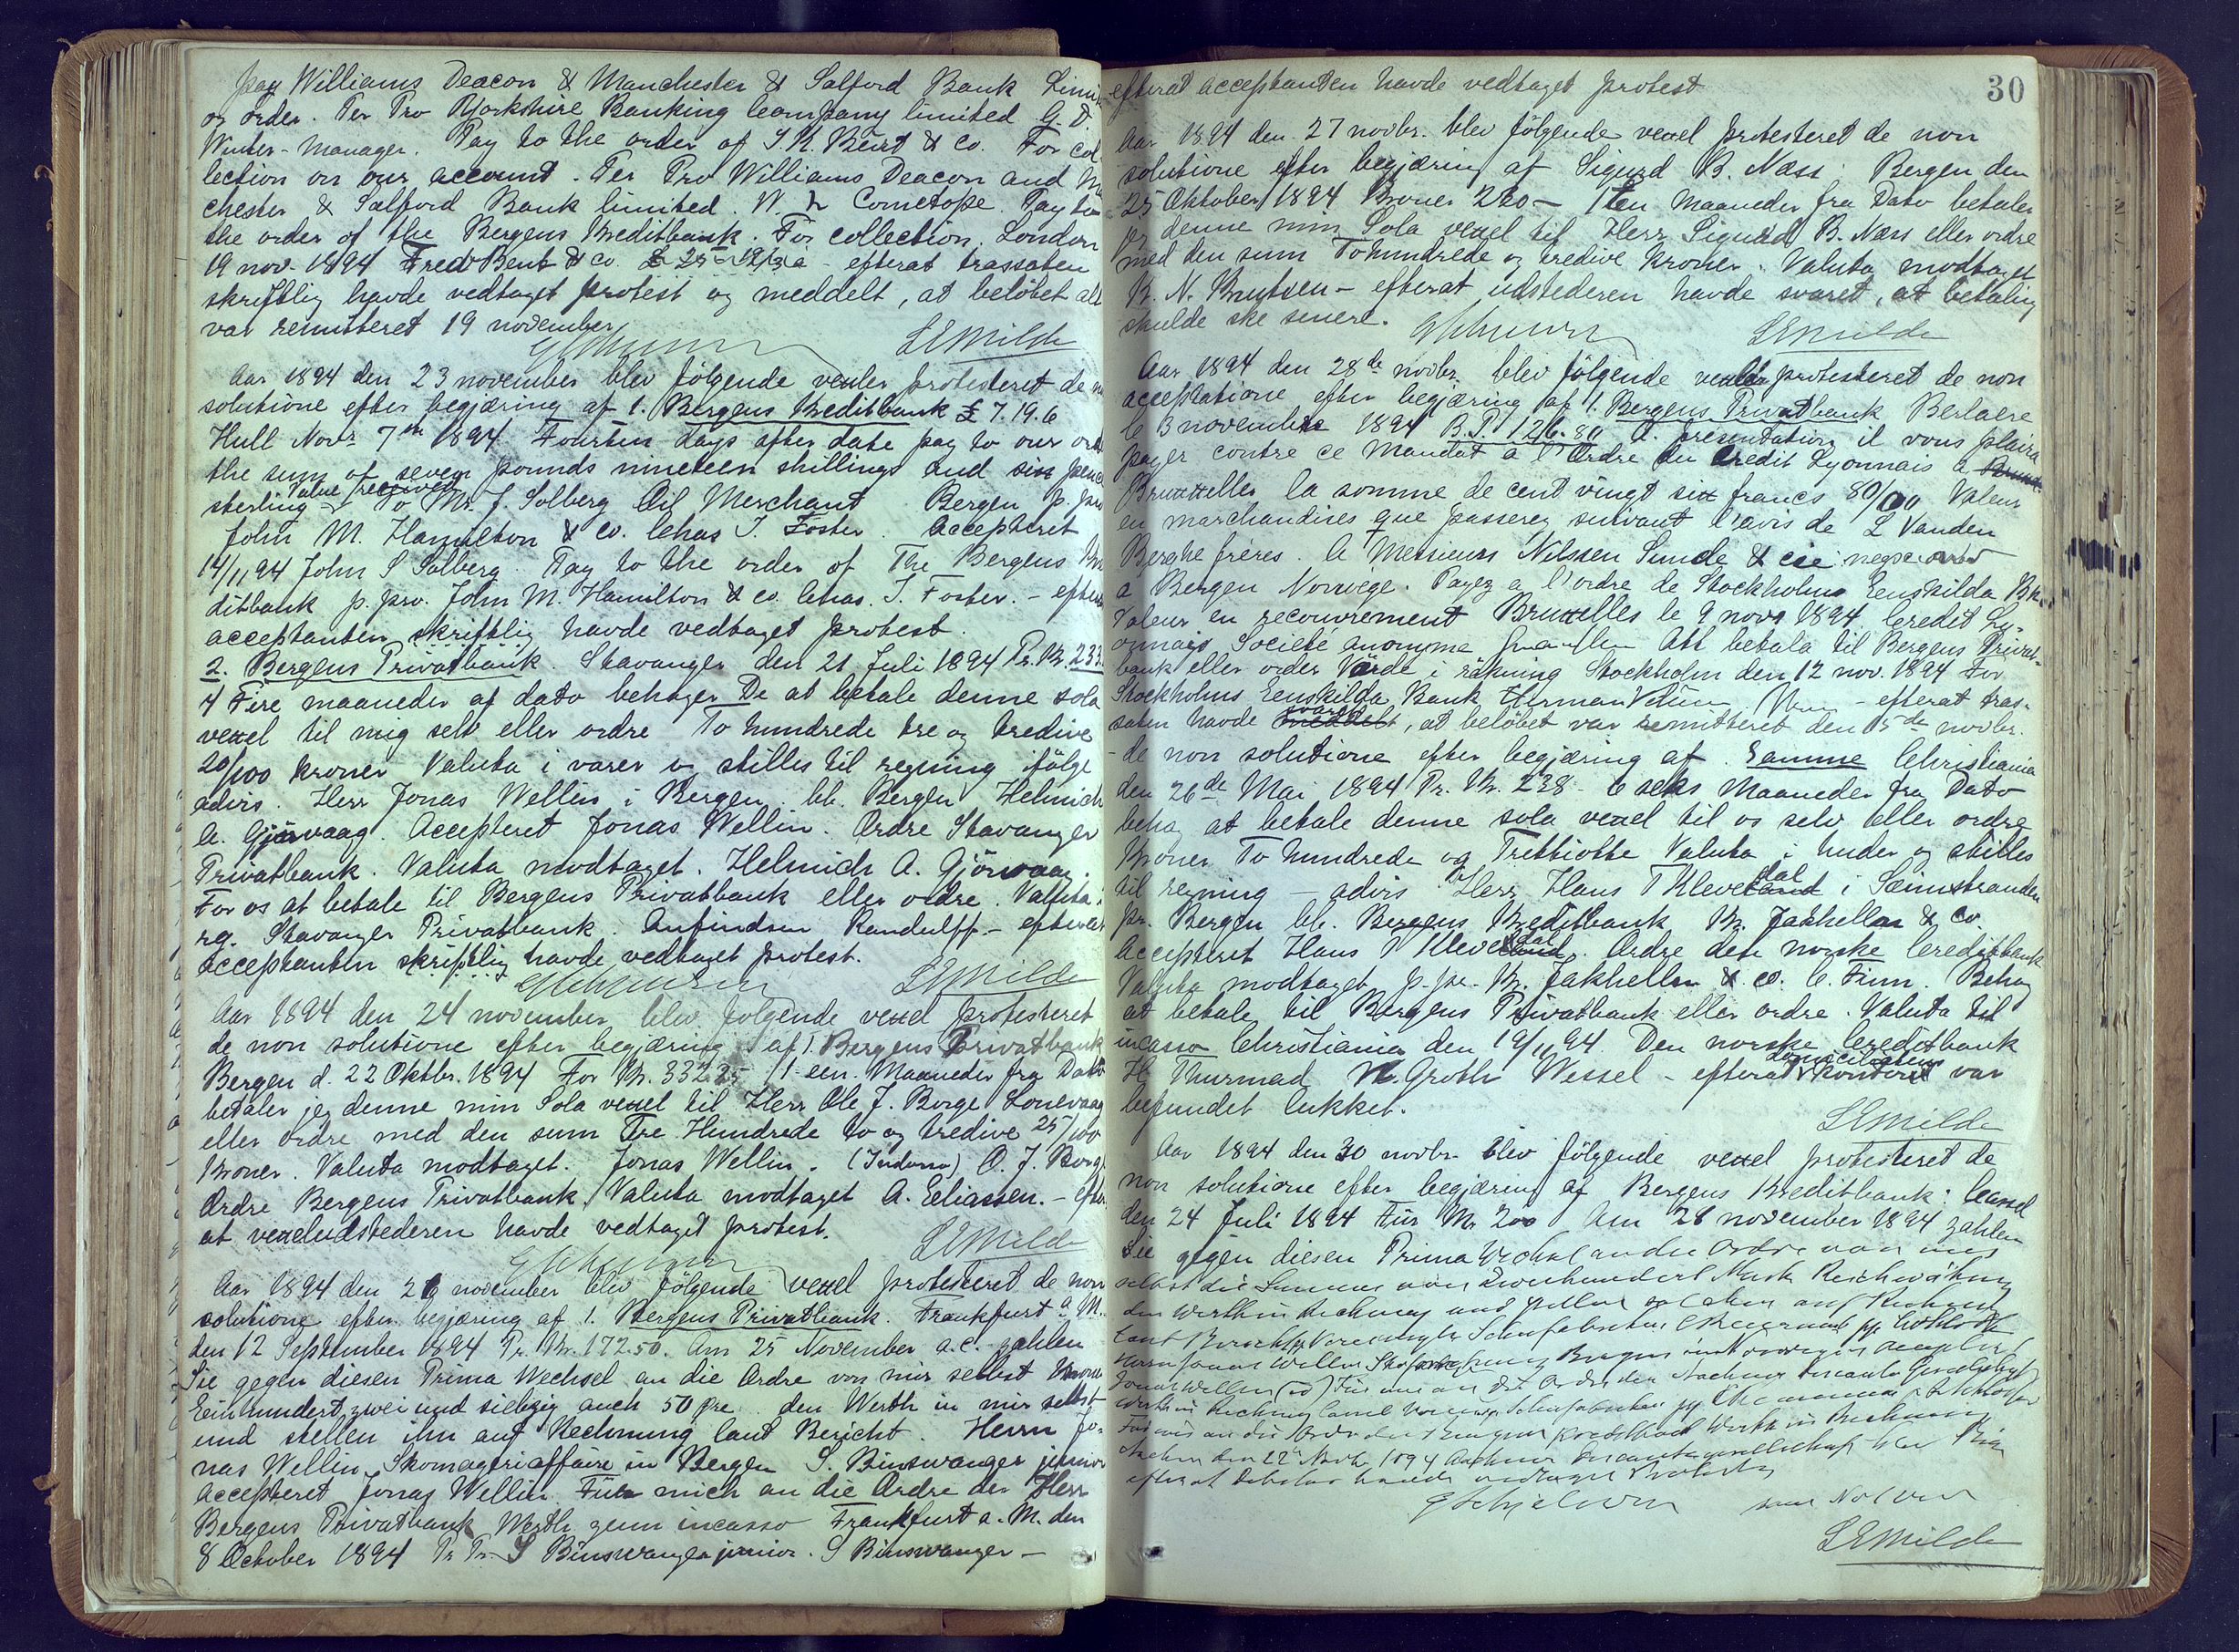 pay Williams Deacon & Manchester & Salford Bank Limi
og order. Per Pro Yorkshire Banking Company limited G. D.
Winter - Manager. Pay to the order of & Co. For col
lection on our account. Per Pro Williams Deacon and M
chester & Salford Bank limited. W. Pay to
the order of the Bergens Kreditbank. For collection. London
19 nov. 1894 Fred & Co. efterat trassaten
skriftlig havde vedtaget protest og meddelt, at beløbet alt
var remitteret 19 november
LEMilde
Aar 1894 den 23 november blev følgende vexler protesteret de n
solutione efter begjæring af 1. Bergens Kreditbank £ 7.19.6
Hull Novr 7th 1894. Fourteen days after date pay to our ord
the sum of seven pounds nineteen shillings and six pence
sterling value received To Mr. J. Solberg Oil Merchant Bergen p. pro
John M. Hamilton & Co. Chas J. Foster. Accepteret
14/11 94 John S Solberg. Pay to the order of The Bergens Kre
ditbank p. pro. John M. Hamilton & Co. Chas. J. Foster. - efter
acceptanten skriftlig havde vedtaget protest.
2. Bergens Privatbank. Stavanger den 21 Juli 1894 Pr. Kr. 233.
4 Fire maaneder af dato behager De at betale denne sola
vexel til mig selv eller ordre To hundrede tre og tredive
20/100 kroner Valuta i varer og stilles til regning ifølge
advis. Herr Jonas Wellin i Bergen. bb. Bergen Helmich
A. Gjørvaag. Accepteret Jonas Wellin. Ordre Stavanger
Privatbank. Valuta modtaget. Helmich A. Gjørvaag.
For os at betale til Bergens Privatbank eller ordre. Valuta i
rg. Stavanger Privatbank. Anfindsen Randulff. - efterat
acceptanten skriftlig havde vedtaget protest.
LEMilde
Aar 1894 den 24 november blev følgende vexel protesteret
de non solutione efter begjæring af 1. Bergens Privatbank
Bergen d. 22 Oktbr. 1894 For Kr. 332.25 / 1 een Maaneder fra Dato
betaler jeg denne min Sola vexel til Herr Ole J. Borge Lonevaag
eller ordre med den sum Tre Hundrede to og tredive 25/100
Kroner. Valuta modtaget. Jonas Wellin. O. J. Borge
Ordre Bergens Privatbank / Valuta modtaget A. Eliassen. - efter
at vexeludstederen havde vedtaget protest.
LEMilde
Aar 1894 den 26 november blev følgende vexel protesteret de non
solutione efter begjæring af 1. Bergens Privatbank. Frankfurt a. M.
den 12 September 1894 Pr. Kr. 172.50. Am 25 November a.c. zahlen
Sie gegen diesen Prima Wechsel an die Ordre von mir selbst Kronen
Einhundert zwei und siebzig auch 50 Øre. den Werth in mir selbst
und stellen ihn auf Rechnung laut Bericht. Herrn Jo-
nas Wellin Skomageriaffaire in Bergen S. Binswanger junior
Accepteret Jonas Wellin. Für mich an die Ordre der Herr
Bergens Privatbank Werth zum incasso Frankfurt a. M. den
8 October 1894 Pr Pr. S Binswanger junior. S Binswanger -
efterat acceptanten havde vedtaget protest
30
Aar 1894 den 27 novbr. blev følgende vexel protesteret de non
solutione efter begjæring af Sigurd B. Næss. Bergen den
25 Oktober 1894 Kroner 230 - 1 Een Maaneder fra Dato betaler
jeg denne min Sola vexel til Herr Sigurd B. Næss eller ordre
med den sum Tohundrede og tredive Kroner. Valuta modtaget
K. N. Knutsen - efterat udstederen havde svaret, at betaling
skulde ske senere.
LEMilde
Aar 1894 den 28de novbr. blev følgende vexler protesteret de non
acceptatione efter begjæring af 1. Bergens Privatbank Berlaere
le 3 novembre 1894 B.P. 126.80 A. presentation il vous plaira
payer contre ce Mandat a l'Ordre du Credit Lyonnais a
Bruxelles la somme de cent vingt six francs 80/00 Valeur
en marchandises que passerez suivant l'avis de L Vanden
Berghe frères. A Messieurs Nilssen Sunde & cie
a Bergen Norvege. Payez a l'ordre de Stockholms Enskilda Bk.
Valeur en recouvrement Bruxelles le 9 novr 1894. Credit Ly-
onnais Societé anonyme Att betala til Bergens Privat-
bank eller order Värde i räkning Stockholm den 12 nov. 1894 For
Stockholms Enskilda Bank Herman - efterat tras-
saten havde svaret, at beløbet var remitteret den 15de novbr.
- de non solutione efter begjæring af Samme Christiania
den 26de Mai 1894 Pr. Kr. 238 - 6 seks Maaneder fra Dato
behag at betale denne sola vexel til os selv eller ordre
Kroner To hundrede og Trettiotte Valuta i huder og stilles
til regning - advis Herr Hans T Kleveldal i Sæimstranden
pr. Bergen bb. Bergens Kreditbank Kr. Jakhelln & Co.
Accepteret Hans T Kleveldal. Ordre den norske Creditbank
Valuta modtaget p.pr. Kr. Jakhelln & Co. C. Finn. Behag
at betale til Bergens Privatbank eller ordre. Valuta til
incasso Christiania den 19/11 94 Den norske Creditbank
H Thurmad N. Groth Wessel - efterat domicilstedets kontoret var
befundet lukket.
LEMilde
Aar 1894 den 30 novbr. blev følgende vexel protesteret de
non solutione efter begjæring af Bergens Kreditbank: Cassel
den 24 Juli 1894 Für Mr. 200 Am 28 november 1894 zahlen
Sie gegen diesen Prima Wechsel an die Ordre von uns
selbst die Summe von Zweihundert Mark Reichswährung
den Werth in Rechnung und stellen solchen auf Rechnung
laut Bericht Vereinigte Schuhfabriken
Herrn Jonas Wellin Bergen in Norwegen
Jonas Wellin Für uns an die Ordre der Aachener Disconto Gesellschaft
Werth in Rechnung
Für uns an die Ordre der Bergens Kreditbank Werth in Rechnung
Aachen den 22 Novbr. 1894 Aachener Discontogesellschaft
efterat havde vedtaget Protest
LEMilde